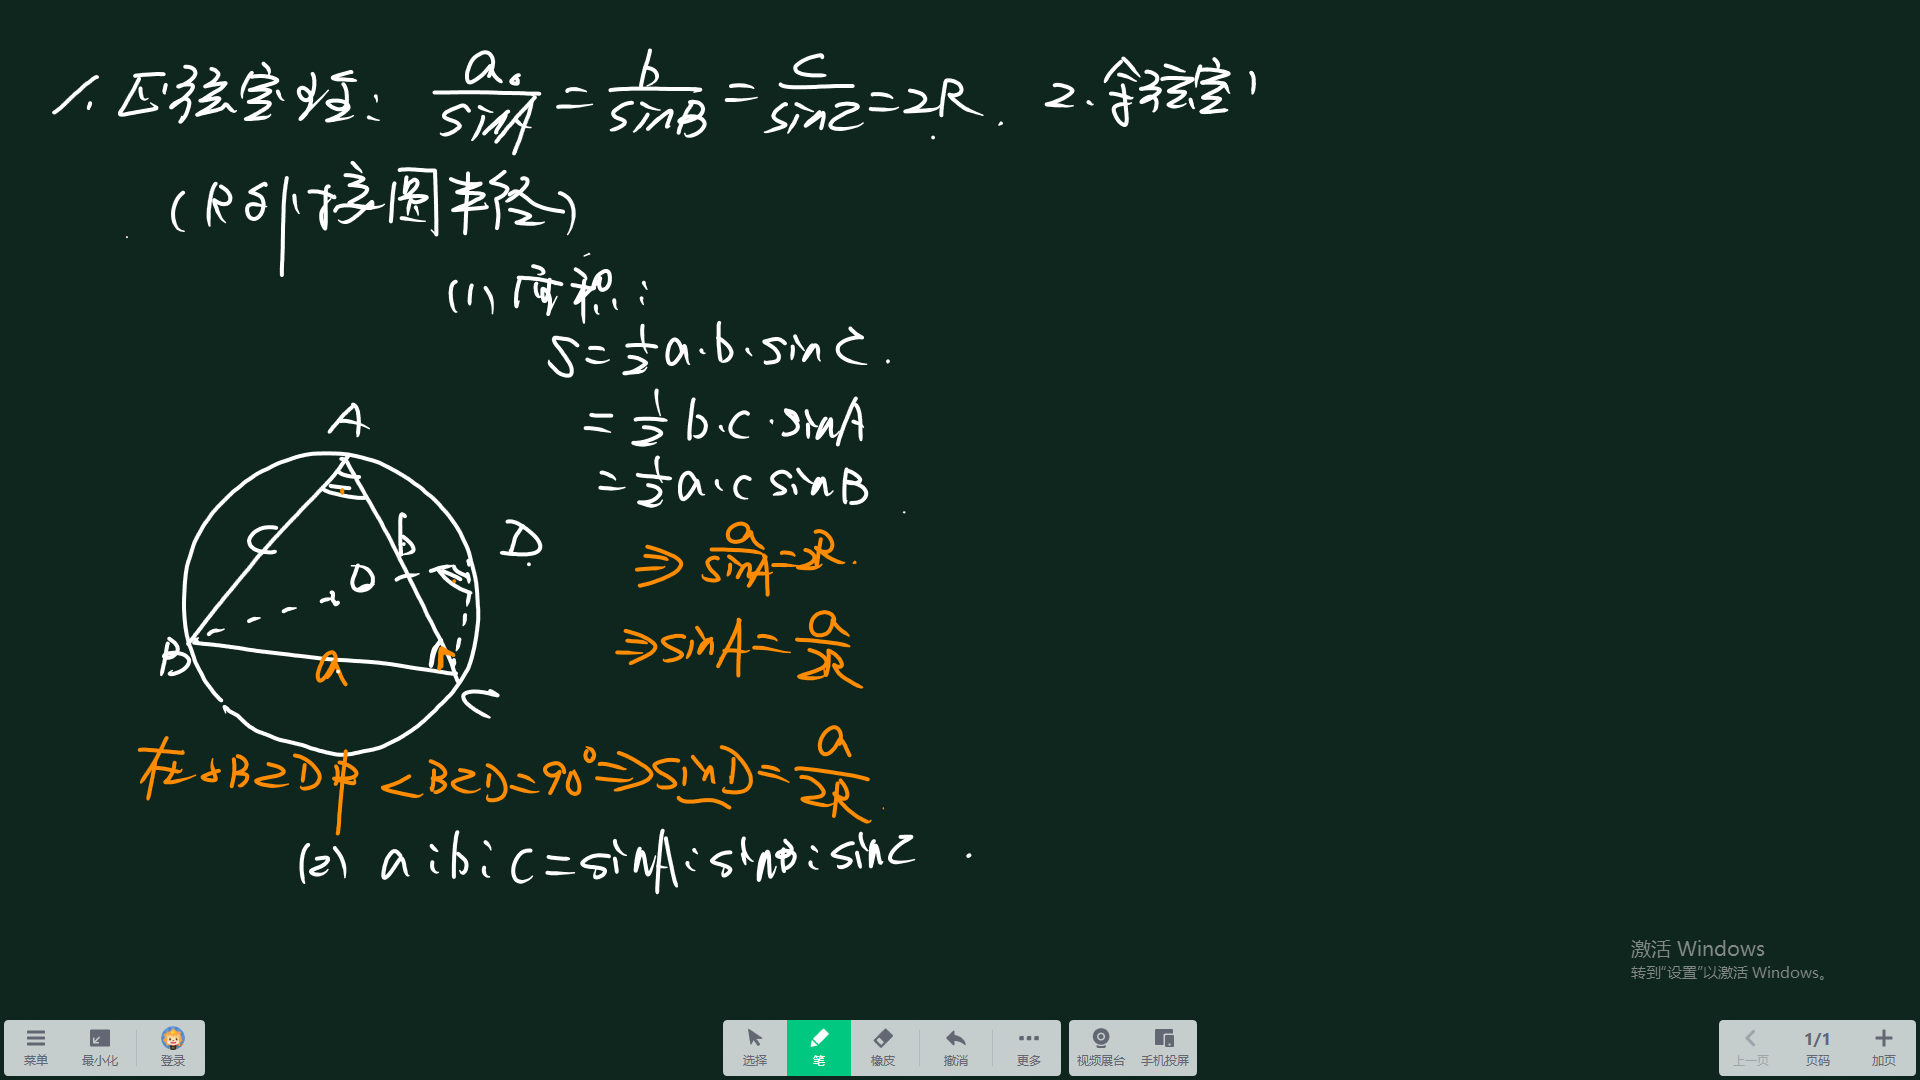 1. 正弦定理: a/sinA = b/sinB = c/sinC = 2R. 2. 余弦定
(R외接圆半径)
(1) 面积:
S = 1/2 a·b·sinC.
= 1/2 b·c·sinA
= 1/2 a·c sinB
⇒ a/sinA = 2R.
⇒ sinA = a/2R
A
c
b
D
O
B
a
C
在△BCD中 ∠BCD=90°⇒sinD = a/2R.
(2) a:b:c = sinA:sinB:sinC
激活 Windows
转到“设置”以激活 Windows。
菜单 最小化 登录 选择 笔 橡皮 撤消 更多 视频展台 手机投屏 上一页 1/1 页码 加页